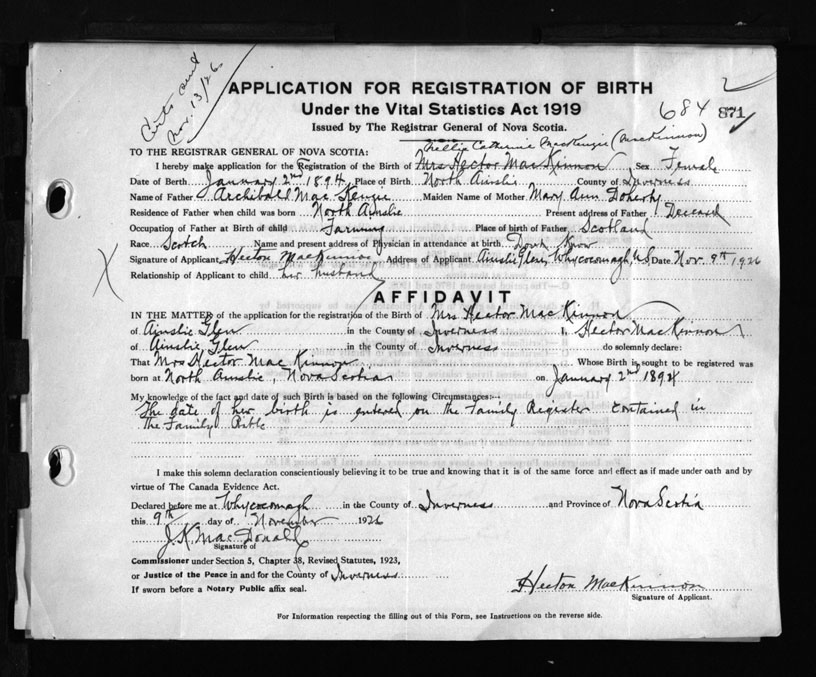 Certs sent
Nov. 13/26.
APPLICATION FOR REGISTRATION OF BIRTH
Under the Vital Statistics Act 1919
684 871
Issued by The Registrar General of Nova Scotia.
Nellie Catherine MacKenzie (MacKinnon)
TO THE REGISTRAR GENERAL OF NOVA SCOTIA:
I hereby make application for the Registration of the Birth of Mrs Hector MacKinnon Sex Female
Date of Birth January 2nd 1894 Place of Birth North Ainslie County of Inverness
Name of Father Archibald MacKenzie Maiden Name of Mother Mary Ann Doherty
Residence of Father when child was born North Ainslie Present address of Father Deceased
Occupation of Father at Birth of child Farming Place of birth of Father Scotland
Race Scotch Name and present address of Physician in attendance at birth Dont Know
Signature of Applicant Hector MacKinnon Address of Applicant Ainslie Glen, Whycocomagh, N.S. Date Nov. 9th 1926
Relationship of Applicant to child her husband
AFFIDAVIT
IN THE MATTER of the application for the registration of the Birth of Mrs Hector MacKinnon
of Ainslie Glen in the County of Inverness I, Hector MacKinnon
of Ainslie Glen in the County of Inverness do solemnly declare:
That Mrs Hector MacKinnon Whose Birth is sought to be registered was
born at North Ainslie, Nova Scotia on January 2nd 1894
My knowledge of the fact and date of such Birth is based on the following Circumstances:-
The date of her birth is entered on the Family Register contained in
the Family Bible
I make this solemn declaration conscientiously believing it to be true and knowing that it is of the same force and effect as if made under oath and by
virtue of The Canada Evidence Act.
Declared before me at Whycocomagh in the County of Inverness and Province of Nova Scotia
this 9th day of November 1926
J. K. MacDonald
Signature of
Commissioner under Section 5, Chapter 38, Revised Statutes, 1923,
or Justice of the Peace in and for the County of Inverness
If sworn before a Notary Public affix seal.
Hector MacKinnon
Signature of Applicant.
For Information respecting the filling out of this Form, see Instructions on the reverse side.